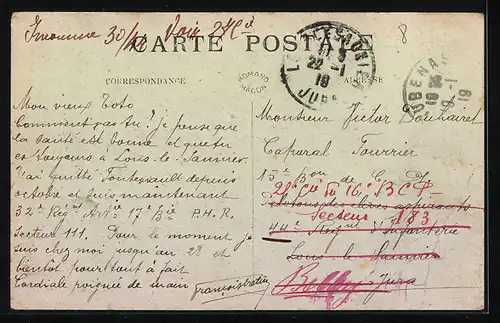 Inconnu 30/12 Voir 28e Cie
8
CARTE POSTALE
CORRESPONDANCE
ADRESSE
ROMAND MACON
LONS-LE-SAUNIER
22 -1
19
JURA
AUBENAS
19 -1
19
Mon vieux Toto
Comment vas tu? Je pense que
ta santé est bonne et que tu
es toujours à Lons le Saunier.
J'ai quitté Fontevrault depuis
octobre et suis maintenant
32e Régt Artie 17e Bie P.H.R.
Secteur 111. Pour le moment je
suis chez moi jusqu'au 28 et
bientôt pour tout à fait
Cordiale poignée de main
Monsieur Victor
Caporal Fourrier
15e Bon de
28e Cie du 16e B C P
Pelotons des élèves aspirants
Secteur 183
44e Regint d'Infanterie
Lons le Saunier
Jura